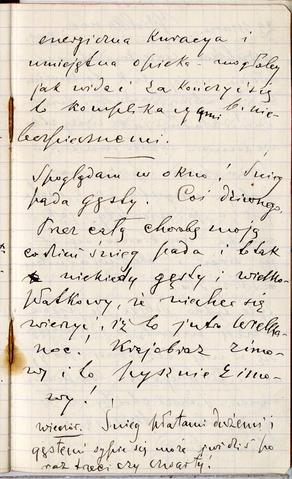 energiczna kuracya i
umiejętna opieka - mogłaby
jak widać zakończyć się
to komplikacyami b. nie-
bezpiecznemi.
Spoglądam w okno! Śnieg
pada gęsty. Coś dziwnego,
Przez całą chorobę moją
codzień śnieg pada i to tak
niekiedy gęsty i wielko-
płatkowy, że niechce się
wierzyć, iż to jutro Wielka-
noc! Krajobraz zimo-
wy i to pysznie zimo-
wy!
wieczór. Śnieg płatami dużemi i
gęstemi sypie się może już dziś po
raz trzeci czy czwarty!